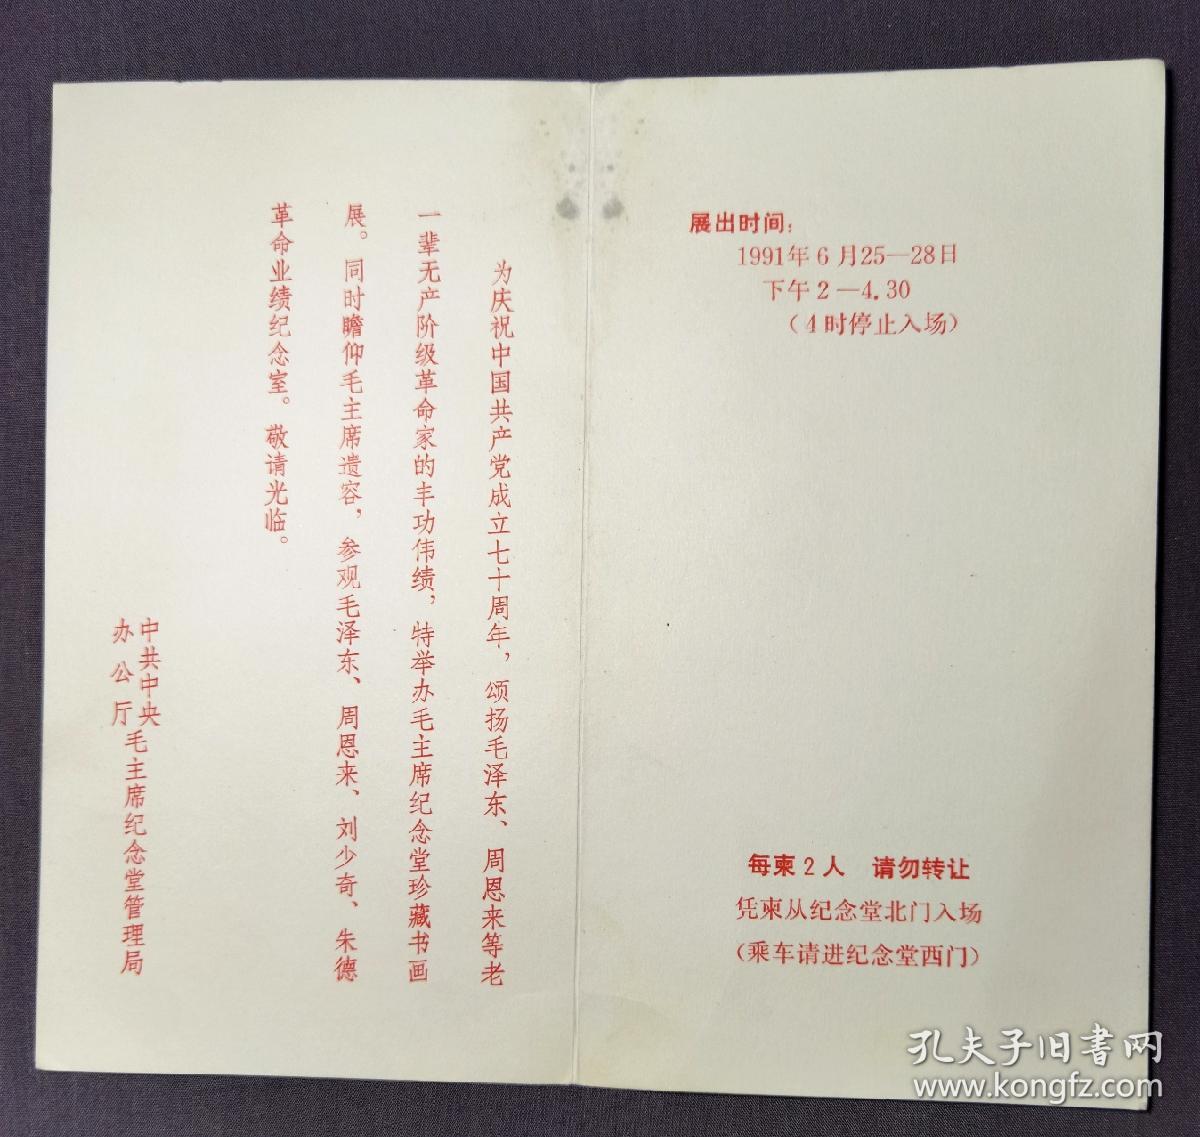 为庆祝中国共产党成立七十周年，颂扬毛泽东、周恩来等老
一辈无产阶级革命家的丰功伟绩，特举办毛主席纪念堂珍藏书画
展。同时瞻仰毛主席遗容，参观毛泽东、周恩来、刘少奇、朱德
革命业绩纪念室。敬请光临。
中共中央
办公厅
毛主席纪念堂管理局
展出时间：
1991年6月25—28日
下午2—4.30
（4时停止入场）
每柬2人 请勿转让
凭柬从纪念堂北门入场
（乘车请进纪念堂西门）
孔夫子旧书网
www.kongfz.com